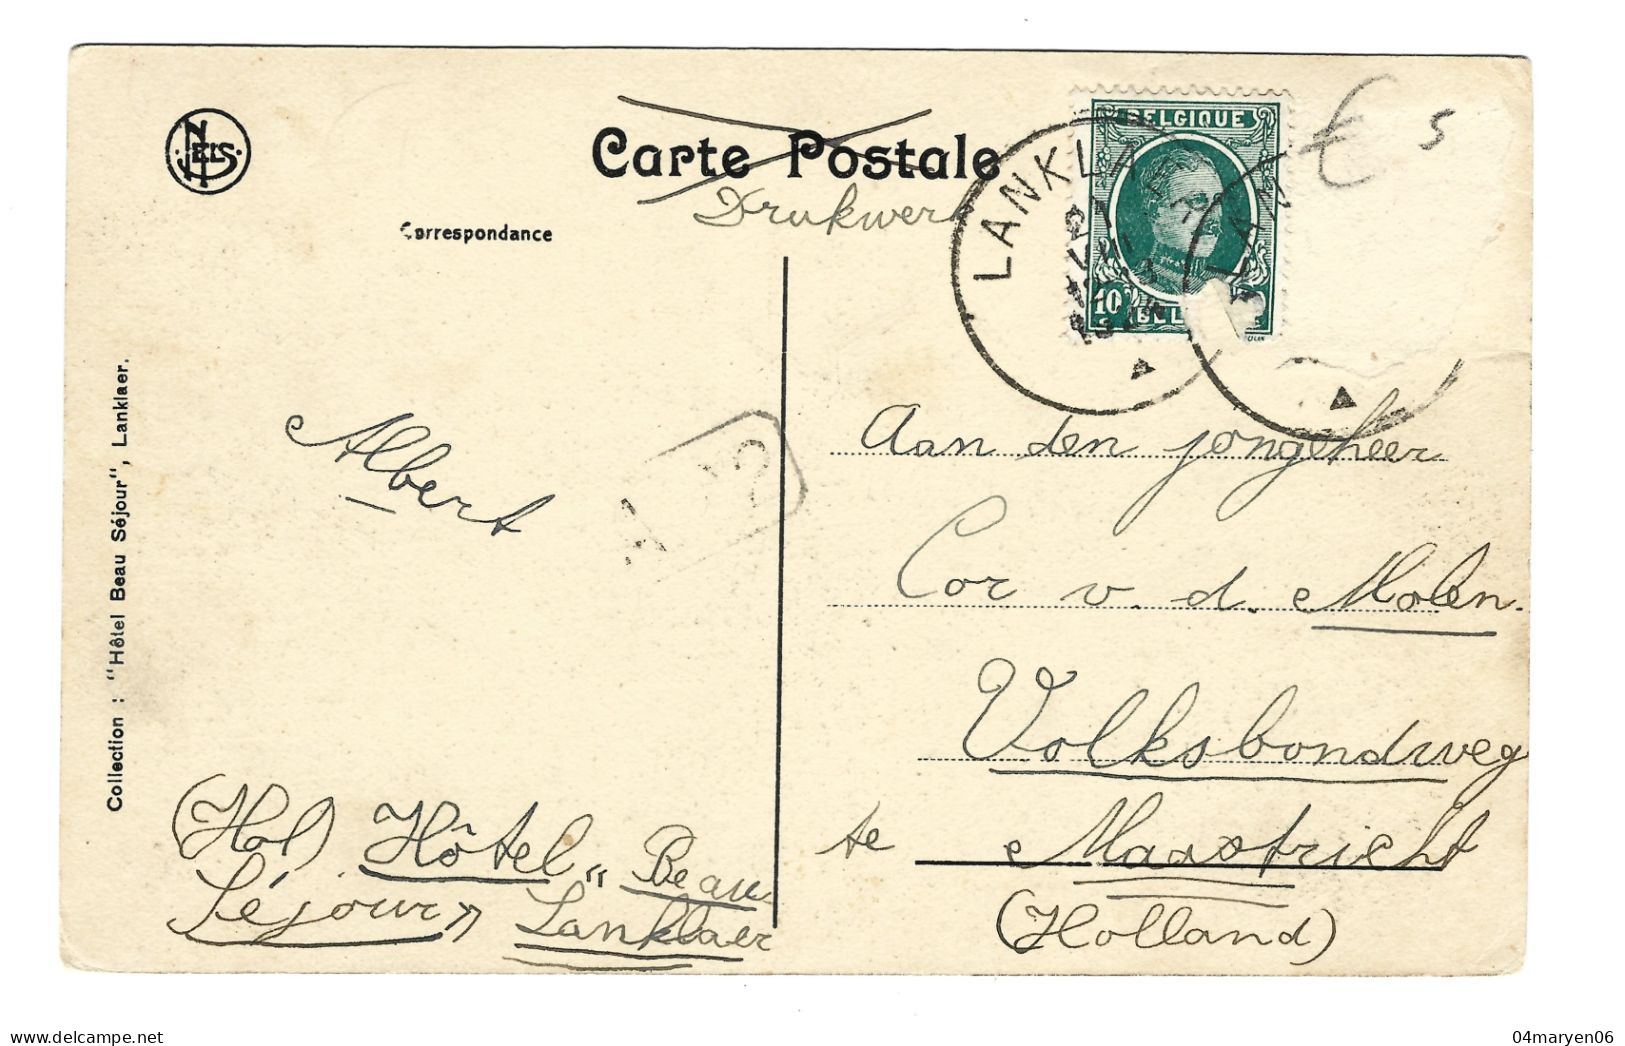 NELS
Carte Postale
Drukwerk
Correspondance
BELGIQUE
LANKLAER
LAN
10
C
€ 5
Collection : "Hôtel Beau Séjour", Lanklaer.
Albert
(Hol) Hôtel „Beau
Séjour" Lanklaer
Aan den jongeheer
Cor v. d. Molen.
Volksbondweg
te Maastricht
(Holland)
delcampe.net
04maryen06